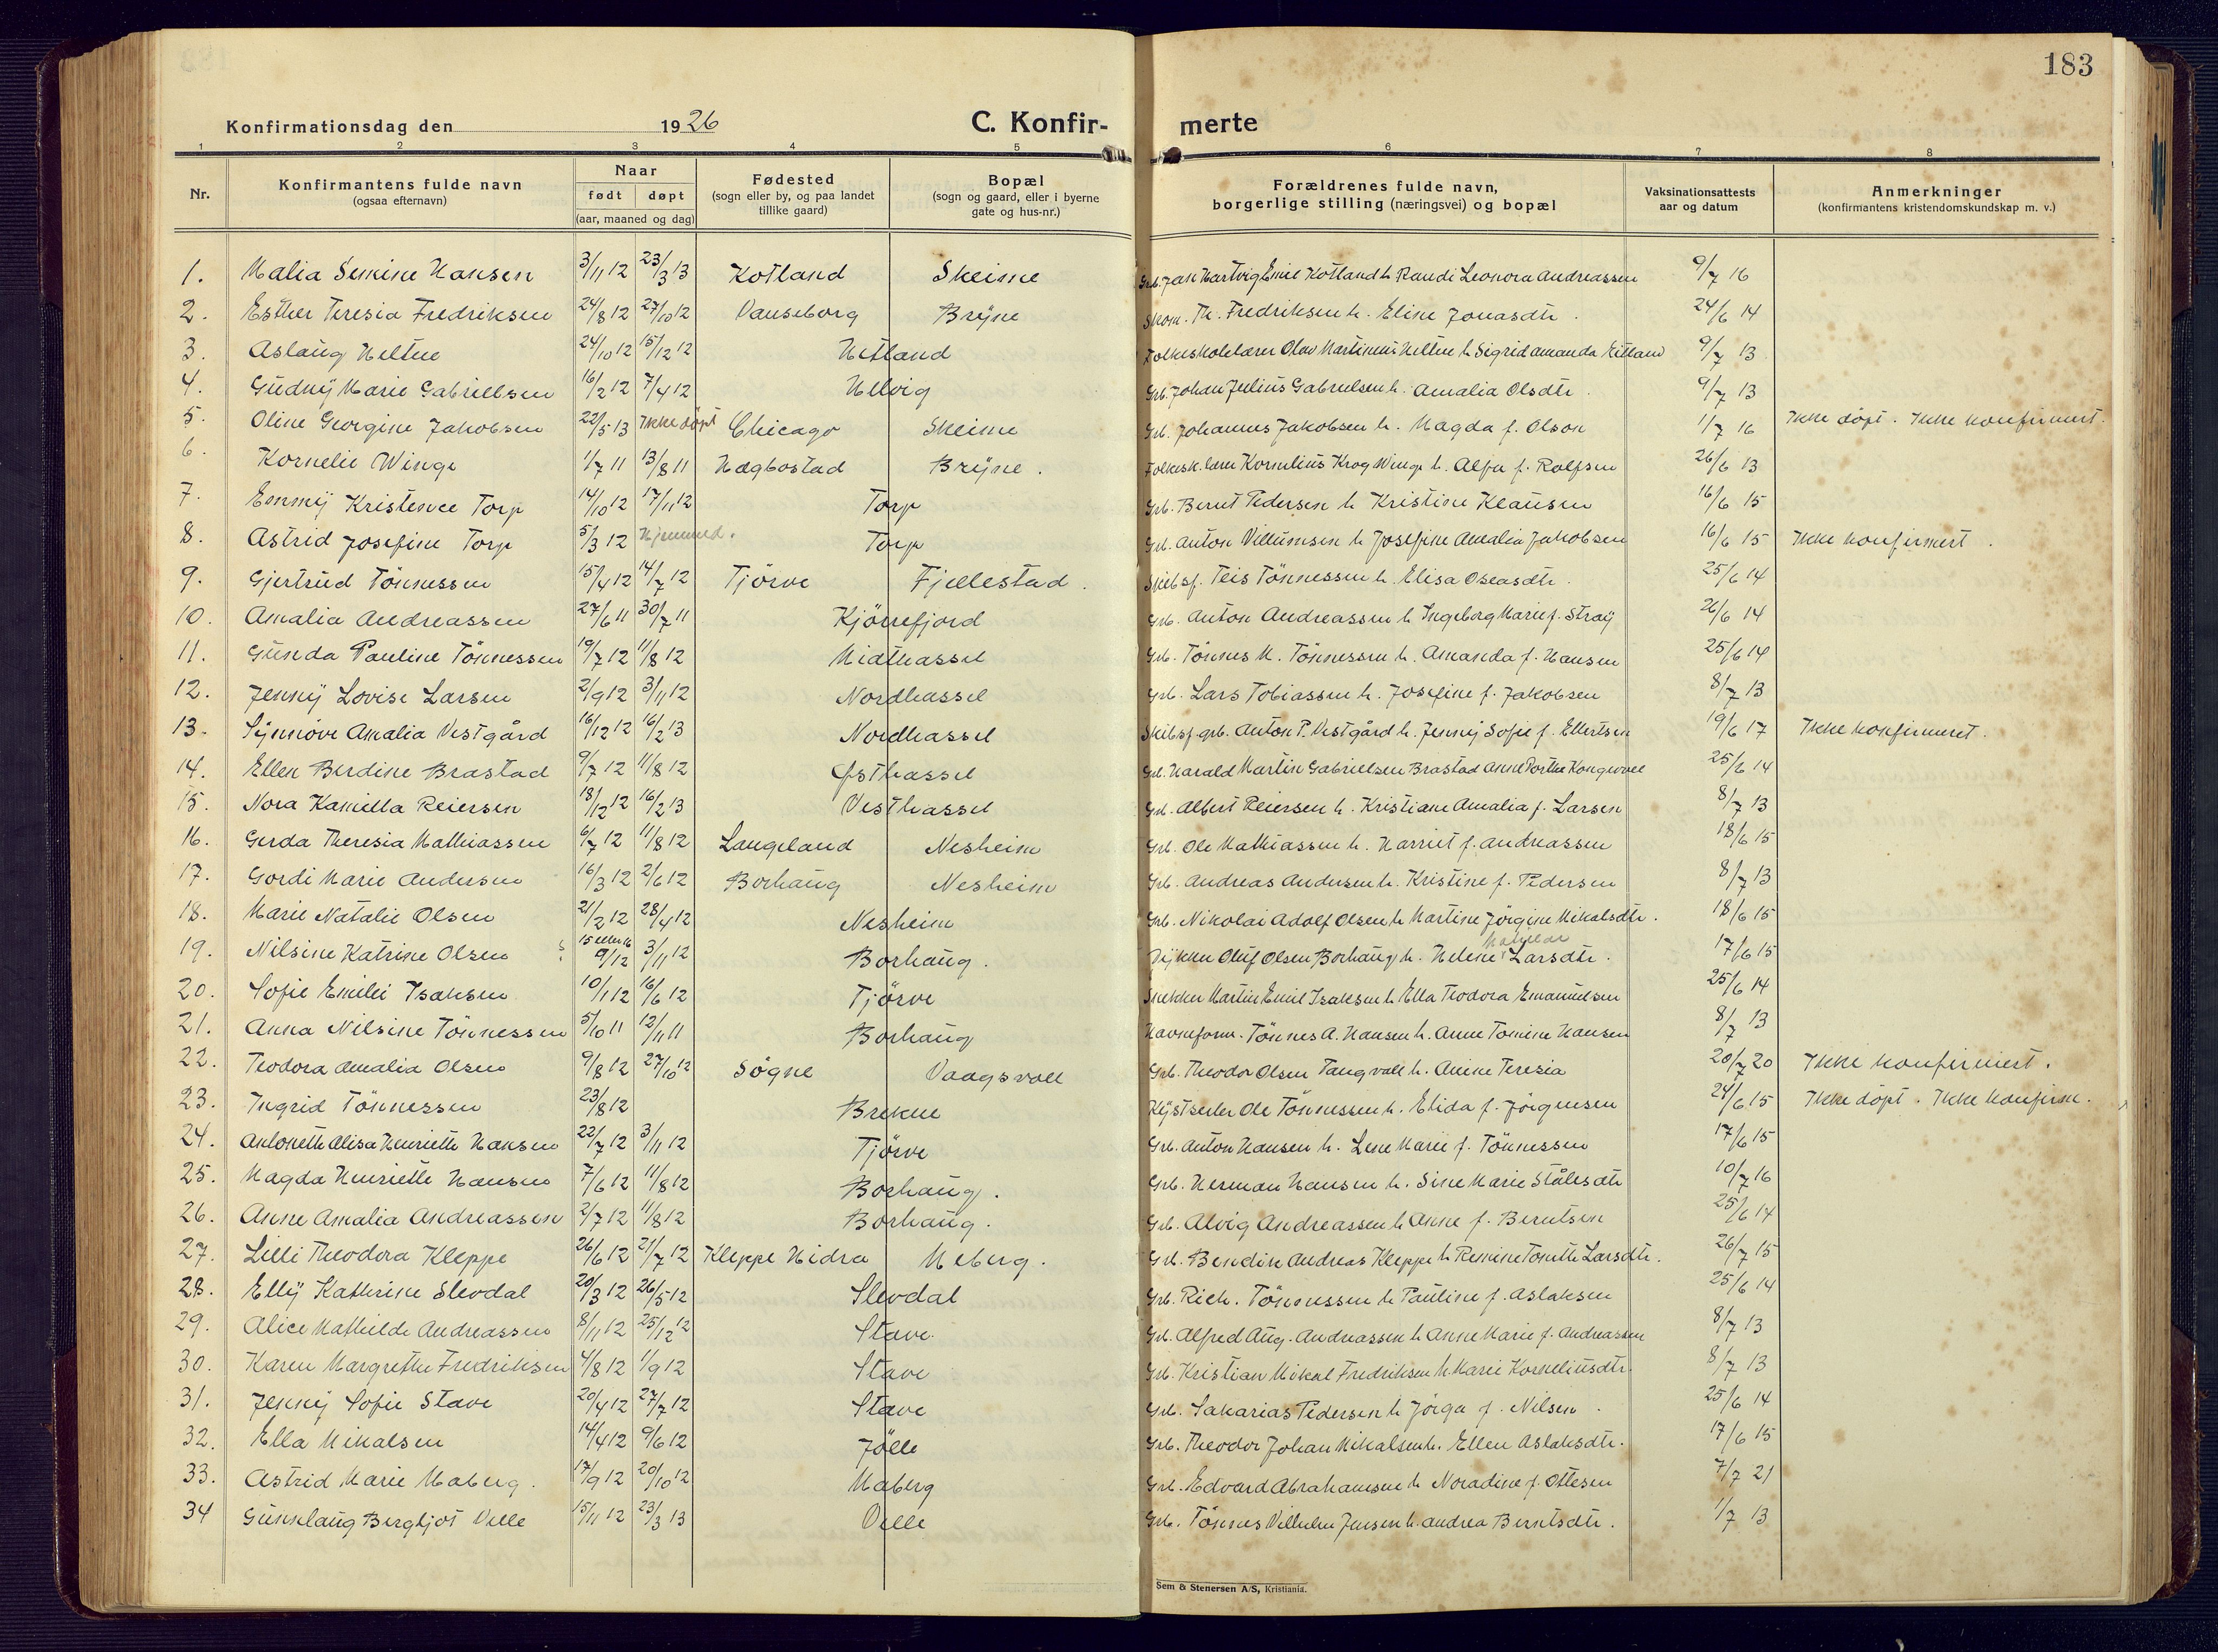 183
Konfirmationsdag den 1926 C. Konfir- merte
1 2 3 4 5 6 7 8
Nr. Konfirmantens fulde navn (ogsaa efternavn) Naar født døpt (aar, maaned og dag) Fødested (sogn eller by, og paa landet tillike gaard) Bopæl (sogn og gaard, eller i byerne gate og hus-nr.) Forældrenes fulde navn, borgerlige stilling (næringsvei) og bopæl Vaksinationsattests aar og datum Anmerkninger (konfirmantens kristendomskundskap m. v.)
1. Malia Semine Hansen 3/11 12 23/3 13 Kotland Skeime Grb. Jan Hartvig Emil Kotland h Randi Leonora Andreassen 9/7 16
2. Esther Teresia Fredriksen 24/8 12 27/10 12 Vanseborg Brÿne Skom. Th. Fredriksen h. Eline Jonasdtr. 24/6 14
3. Aslaug Heltne 24/10 12 15/12 12 Hetland Folkeskolelærer Olav Martinius Heltne h Sigrid Amanda Eitland 9/7 13
4. Gudnÿ Marie Gabrielsen 16/2 12 7/4 12 Hellvig Grb. Johan Julius Gabrielsen h. Amalia Olsdtr. 9/7 13
5. Oline Georgine Jakobsen 22/5 13 Ikke døpt Chicago Skeime Grb. Johannes Jakobsen h. Magda f. Olson 1/7 16 Ikke döpt. Ikke konfirmert.
6. Kornelie Winge 1/7 11 13/8 11 Hægbostad Brÿne. Folkesk.lærer Kornelius Krog Winge h. Alfa f. Rolfsen 26/6 13
7. Emmÿ Kristence Torp 14/10 12 17/11 12 Torp Grb. Bernt Pedersen h Kristine Klausen 16/6 15
8. Astrid Josefine Torp 5/3 12 Hjemmed. Torp Grb. Anton Villumsen h Josefine Amalia Jakobsen 16/6 15 Ikke konfirmert.
9. Gjertrud Tönnessen 15/4 12 14/7 12 Tjörve Fjellestad. Skibsf. Teis Tönnessen h. Elisa Oseasdtr. 25/6 14
10. Amalia Andreassen 27/6 11 30/7 11 Kjörrefjord Grb. Anton Andreassen h Ingeborg Marie f. Straÿ 26/6 14
11. Gunda Pauline Tönnessen 19/7 12 11/8 12 Midthassel Grb. Tönnes M. Tönnessen h. Amanda f. Hansen 25/6 14
12. Jennÿ Lovise Larsen 2/9 12 3/11 12 Nordhassel Grb. Lars Tobiassen h. Josefine f. Jakobsen 8/7 13
13. Sÿnnöve Amalia Vestgård 16/12 12 16/2 13 Nordhassel Skibsf. grb. Anton P. Vestgård h. Jennÿ Sofie f. Ellertsen 19/6 17 Ikke konfirmeret.
14. Ellen Berdine Brastad 9/7 12 11/8 12 Østhassel Grb. Harald Martin Gabrielsen Brastad Anne Dorthe Kongevoll 25/6 14
15. Nora Kamilla Reiersen 18/12 12 16/2 13 Vesthassel Grb. Albert Reiersen h. Kristiane Amalia f. Larsen 8/7 13
16. Gerda Theresia Mathiassen 6/7 12 11/8 12 Langeland Nesheim Grb. Ole Mathiassen h. Harriet f. Andreassen 18/6 15
17. Gordi Marie Andersen 16/3 12 2/6 12 Borhaug Nesheim Grb. Andreas Andersen h. Kristine f. Pedersen 8/7 13
18. Marie Natalie Olsen 21/2 12 28/4 12 Nesheim Grb. Nikolai Adolf Olsen h Martine Jörgine Mikalsdtr. 18/6 15
19. Nilsine Katrine Olsen 15 eller 16 9/12 3/11 12 Borhaug. Dÿkker Oluf Olsen Borhaug h. Helene Larsdtr. 17/6 15
20. Sofie Emilie Isaksen 10/1 12 16/6 12 Tjörve Snekker Martin Emil Isaksen h Ella Teodora Emanuelsen 25/6 14
21. Anna Nilsine Tönnessen 5/10 11 12/11 11 Borhaug Havneform. Tönnes A. Hansen h. Anne Tomine Hansen 8/7 13
22. Teodora Amalia Olsen 9/8 12 27/10 12 Sögne Vaagsvoll Grb. Theodor Olsen Tangvall h. Anine Teresia 20/7 20 Ikke konfirmert.
23. Ingrid Tönnessen 23/8 12 Brekne Kÿstseiler Ole Tönnessen h. Elida f. Jörgensen 24/6 15 Ikke döpt. Ikke konfirm.
24. Antonette Alisa Henriette Hansen 22/7 12 3/11 12 Tjörve Grb. Anton Hansen h. Lene Marie f. Tönnessen 17/6 15
25. Magda Henriette Hansen 7/6 12 11/8 12 Borhaug. Grb. Herman Hansen h. Sine Marie Stålesdtr 10/7 16
26. Anne Amalia Andreassen 2/7 12 11/8 12 Borhaug. Grb. Alvig Andreassen h Anne f. Berntsen 25/6 14
27. Lilli Theodora Kleppe 26/6 12 21/7 12 Kleppe Hidra Meberg. Grb. Bendik Andreas Kleppe h Remine Tonette Larsdtr. 26/7 15
28. Ellÿ Kathrine Slevdal 20/3 12 26/5 12 Slevdal Grb. Rich. Tönnessen h Pauline f. Aslaksen 25/6 14
29. Alice Mathilde Andreassen 8/11 12 25/12 12 Stave. Grb. Alfred Aug. Andreassen h Anne Marie f. Andreassen 8/7 13
30. Karen Margrethe Fredriksen 4/8 12 1/9 12 Stave Grb. Kristian Mikal Fredriksen h. Marie Korneliusdtr. 8/7 13
31. Jennÿ Sofie Stave 20/4 12 27/7 12 Stave Grb. Sakarias Pedersen h Jörga f. Nilsen. 25/6 14
32. Ella Mikalsen 14/4 12 9/6 12 Jölle Grb. Theodor Johan Mikalsen h. Ellen Aslaksdtr. 17/6 15
33. Astrid Marie Maberg. 17/9 12 20/10 12 Maberg Grb. Edvard Abrahamsen h Noradine f. Ottesen 7/7 21
34 Gunnlaug Bergljot Velle 15/11 12 23/3 13 Velle Grb. Tönnes Vilhelm Jensen h. Andrea Berntsdtr. 1/7 13
Sem & Stenersen A/S, Kristiania.